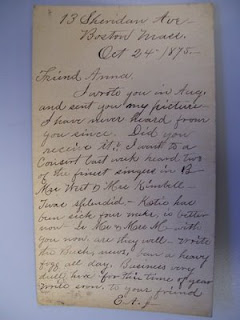 13 Sheridan Ave
Boston Mass.
Oct 24 - 1895.
Friend Anna.
I wrote you in Aug.
and sent you my picture
I have never heard from
you since. Did you
receive it? I went to a
Consert last week heard two
of the finest singers in B
Mrs West & Mrs Kimball -
Twas splendid - Katie has
ben sick four weeks, is better
now - Is Mr & Mrs M. with
you now are they well. write
the news, I am
all day. Business very
dull here for the time of year
write soon to your friend
E. A. J